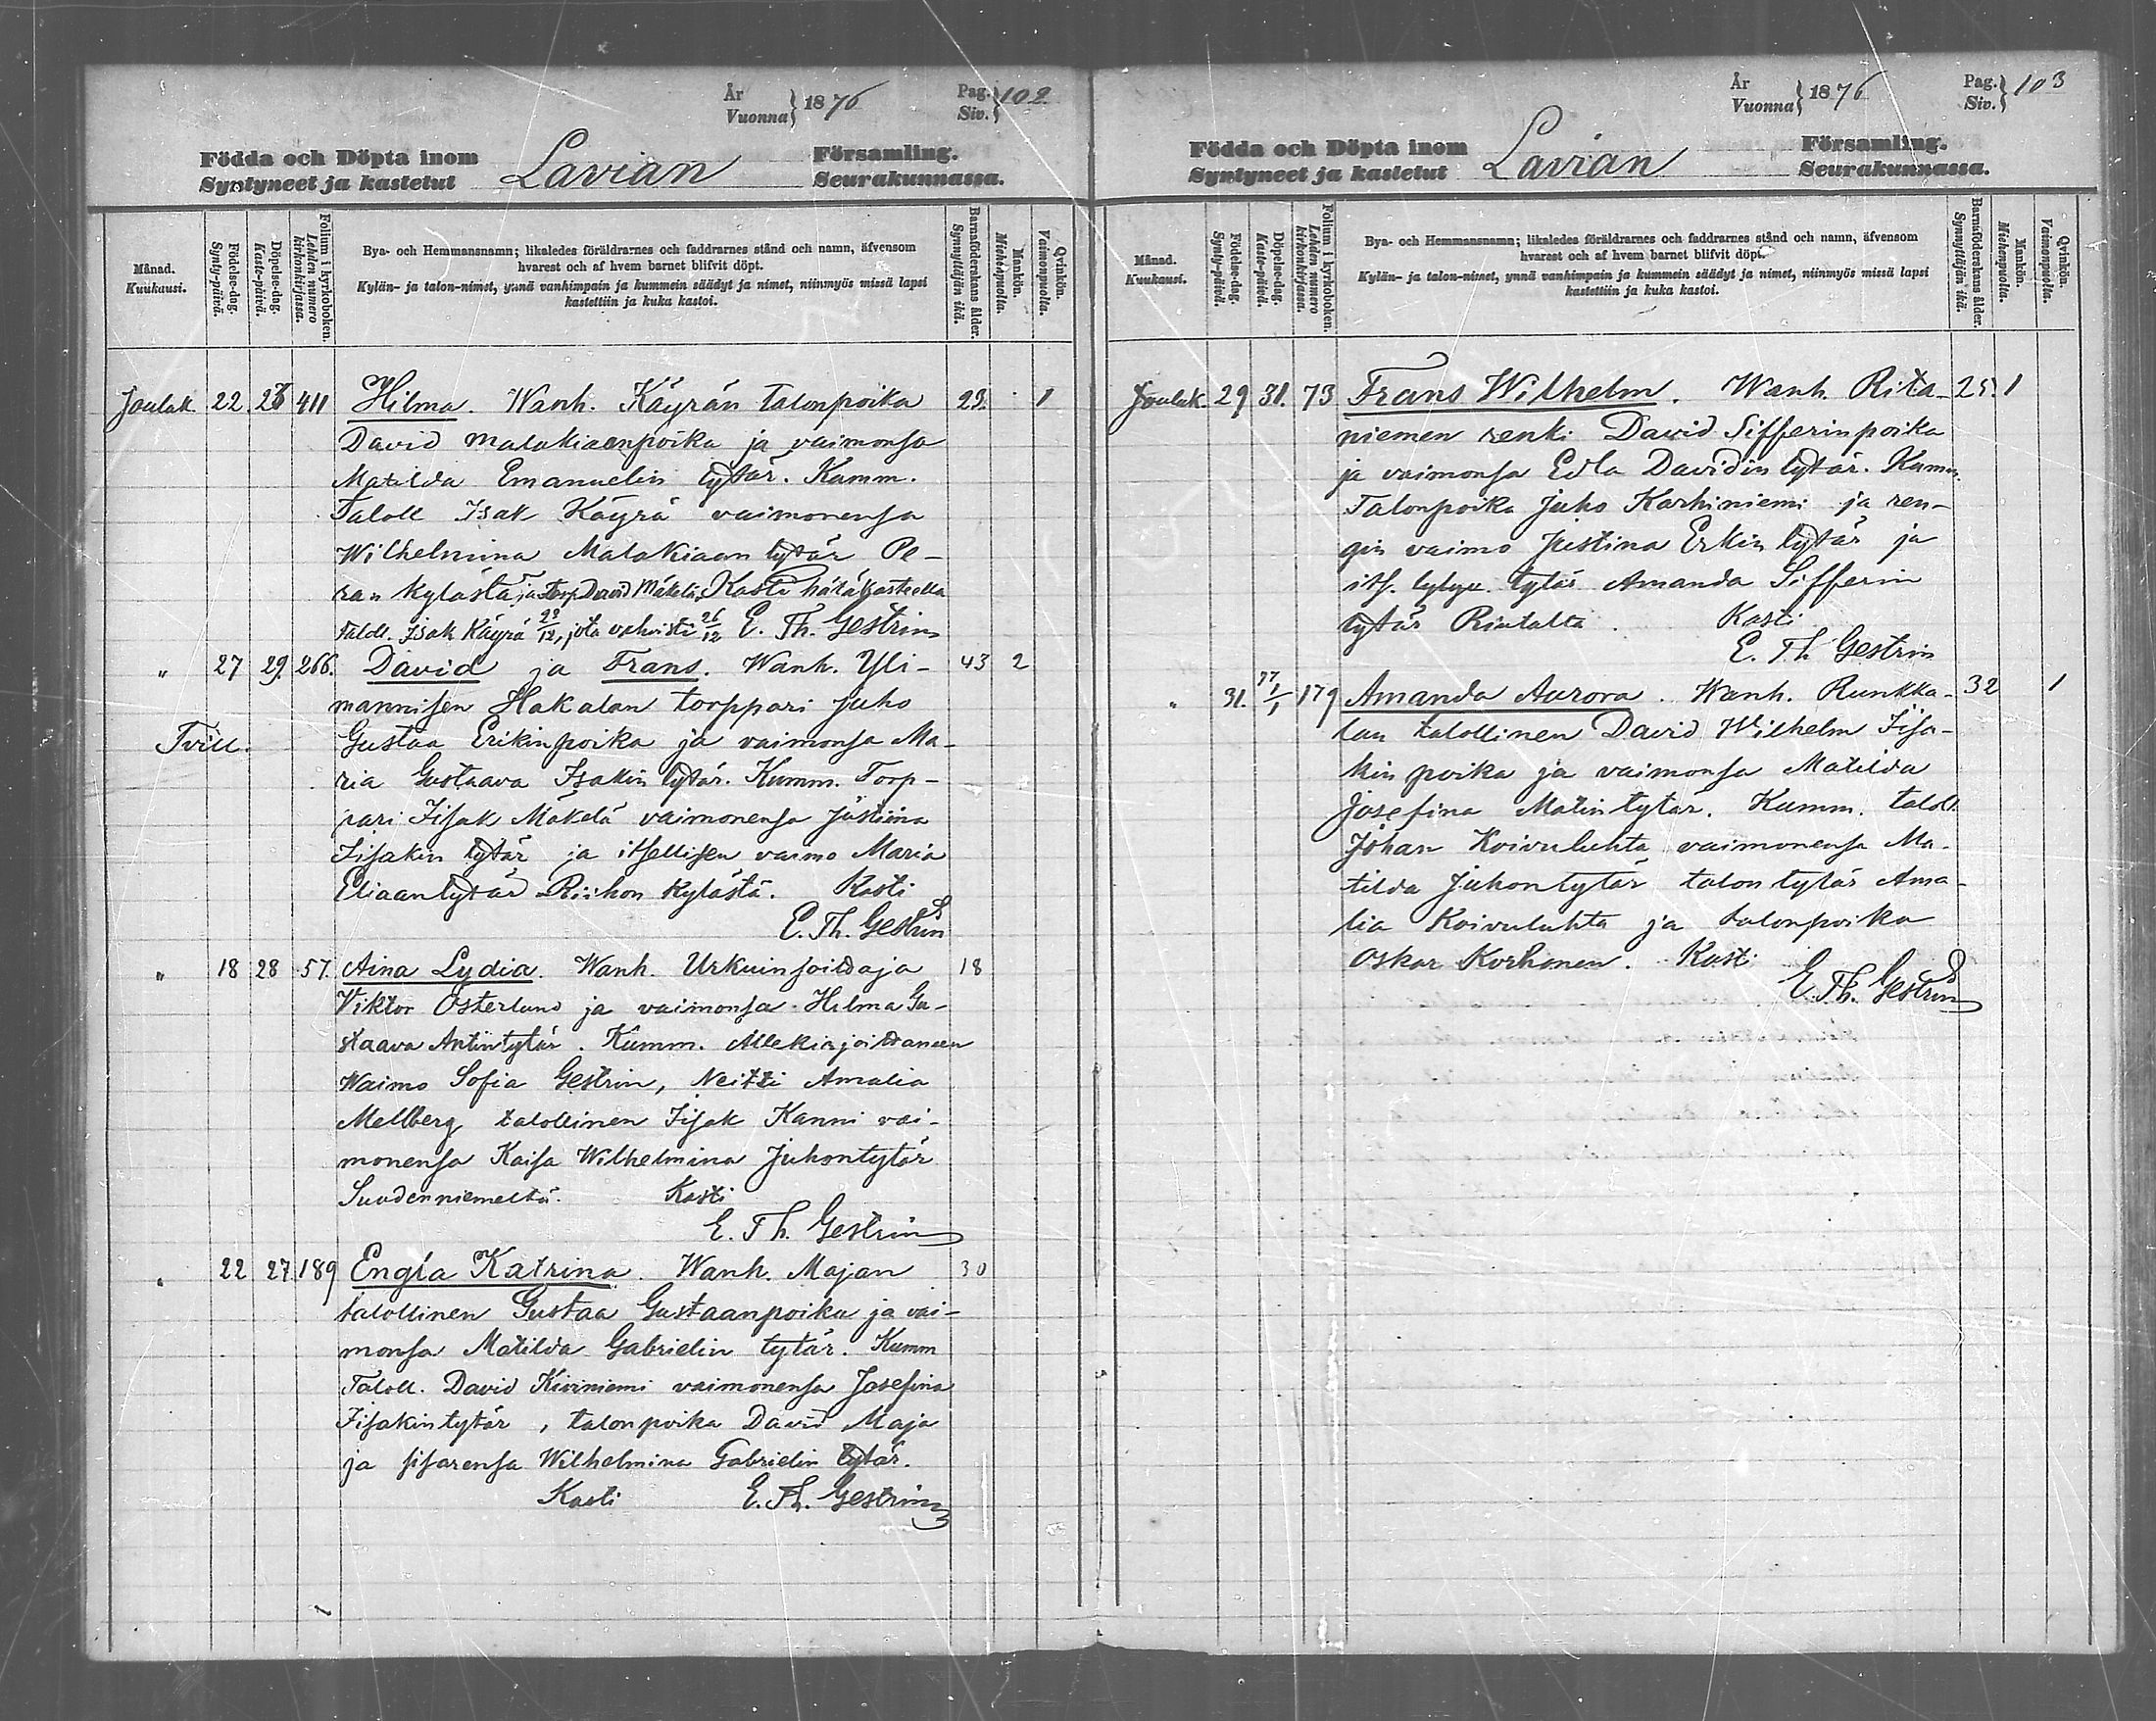 År
Vuonna } 1876
Pag.
Siv. } 102
Födda och Döpta inom
Syntyneet ja kastetut
Lavian
Församling.
Seurakunnassa.
Månad.
Kuukausi.
Födelse-dag.
Synty-päivä.
Döpelse-dag.
Kaste-päivä.
Folium i kyrkoboken.
Lehden numero kirkonkirjassa.
Bya- och Hemmansnamn; likaledes föräldrarnes och faddrarnes stånd och namn, äfvensom
hvarest och af hvem barnet blifvit döpt.
Kylän- ja talon-nimet, ynnä vanhimpain ja kummein säädyt ja nimet, niinmyös missä lapsi
kastettiin ja kuka kastoi.
Barnaföderskans ålder.
Synnyttäjän ikä.
Mankön.
Miehenpuolta.
Qvinkön.
Vaimonpuolta.
Jouluk. 22 411 Hilma. Wanh. Käyrän talonpoika 23. 1
David Malakiaenpoika ja vaimonsa
Matilda Emanuelin tytär. Kumm.
Taloll Isak Käyrä vaimonensa
Wilhelmina Malakiaan tytär Pe-
ran kylästä ja Torp. David Mäkelä. Kaste hätäkasteella
Taloll. Isak Käyrä 12, jota vahvisti 26/12 E. Th. Gestrin
" 27 29. 266. David ja Frans. Wanh. Yli- 43 2
mannisen Hakalan torppari Juho
Tvill.
Gustaa Erikinpoika ja vaimonsa Ma-
ria Gustaava Isakin tytär. Kumm. Torp-
pari Iisak Mäkelä vaimonensa Justiina
Iisakin tytär ja itsellisen vaimo Maria
Eliaantytär Riihon kylästä. Kasti
E. Th. Gestrin
" 18 28 57. Aina Lydia. Wanh. Urkuinsoittaja 18
Viktor Österlund ja vaimonsa Hilma Gu-
staava Antintytär. Kumm. Allekirjoittaneen
Waimo Sofia Gestrin, Neitti Amalia
Mellberg talollinen Iisak Kanni vai-
monensa Kaisa Wilhelmina Juhontytär
Suodenniemeltä. Kasti
E. Th. Gestrin
" 22 27. 189 Engla Katrina. Wanh. Majan 30
talollinen Gustaa Gustaanpoika ja vai-
monsa Matilda Gabrielin tytär. Kumm
Taloll. David Kiviniemi vaimonensa Josefina
Iisakintytär, talonpoika David Maja
ja sisarensa Wilhelmina Gabrielin tytär.
Kasti E. Th. Gestrin
År
Vuonna } 1876
Pag.
Siv. } 103
Födda och Döpta inom
Syntyneet ja kastetut
Lavian
Församling.
Seurakunnassa.
Månad.
Kuukausi.
Födelse-dag.
Synty-päivä.
Döpelse-dag.
Kaste-päivä.
Folium i kyrkoboken.
Lehden numero kirkonkirjassa.
Bya- och Hemmansnamn; likaledes föräldrarnes och faddrarnes stånd och namn, äfvensom
hvarest och af hvem barnet blifvit döpt.
Kylän- ja talon-nimet, ynnä vanhimpain ja kummein säädyt ja nimet, niinmyös missä lapsi
kastettiin ja kuka kastoi.
Barnaföderskans ålder.
Synnyttäjän ikä.
Mankön.
Miehenpuolta.
Qvinkön.
Vaimonpuolta.
Jouluk. 29 31. 73 Frans Wilhelm. Wanh. Rita- 25. 1
niemen renki David Sifferinpoika
ja vaimonsa Edla Davidin tytär. Kumm.
Talonpoika Juho Karhiniemi ja ren-
gin vaimo Justina Erkin tytär ja
tytär Amanda Sifferin
tytär Riutalta. Kasti
E. Th. Gestrin
" 31. 179 Amanda Aurora. Wanh. Runkka- 32 1
lan talollinen David Wilhelm Iisa-
kin poika ja vaimonsa Matilda
Josefina Matintytär. Kumm. taloll
Johan Koivuluhta vaimonensa Ma-
tilda Juhontytär talontytär Ama-
lia Koivuluhta ja talonpoika
Oskar Korhonen. Kasti
E. Th. Gestrin